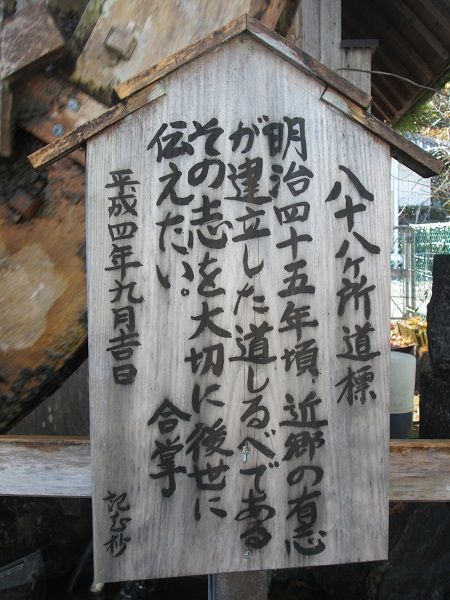 八十八ヶ所道標
明治四十五年頃、近郷の有志
が建立した道しるべである
その志を大切に後世に
伝えたい。
合掌
平成四年九月吉日